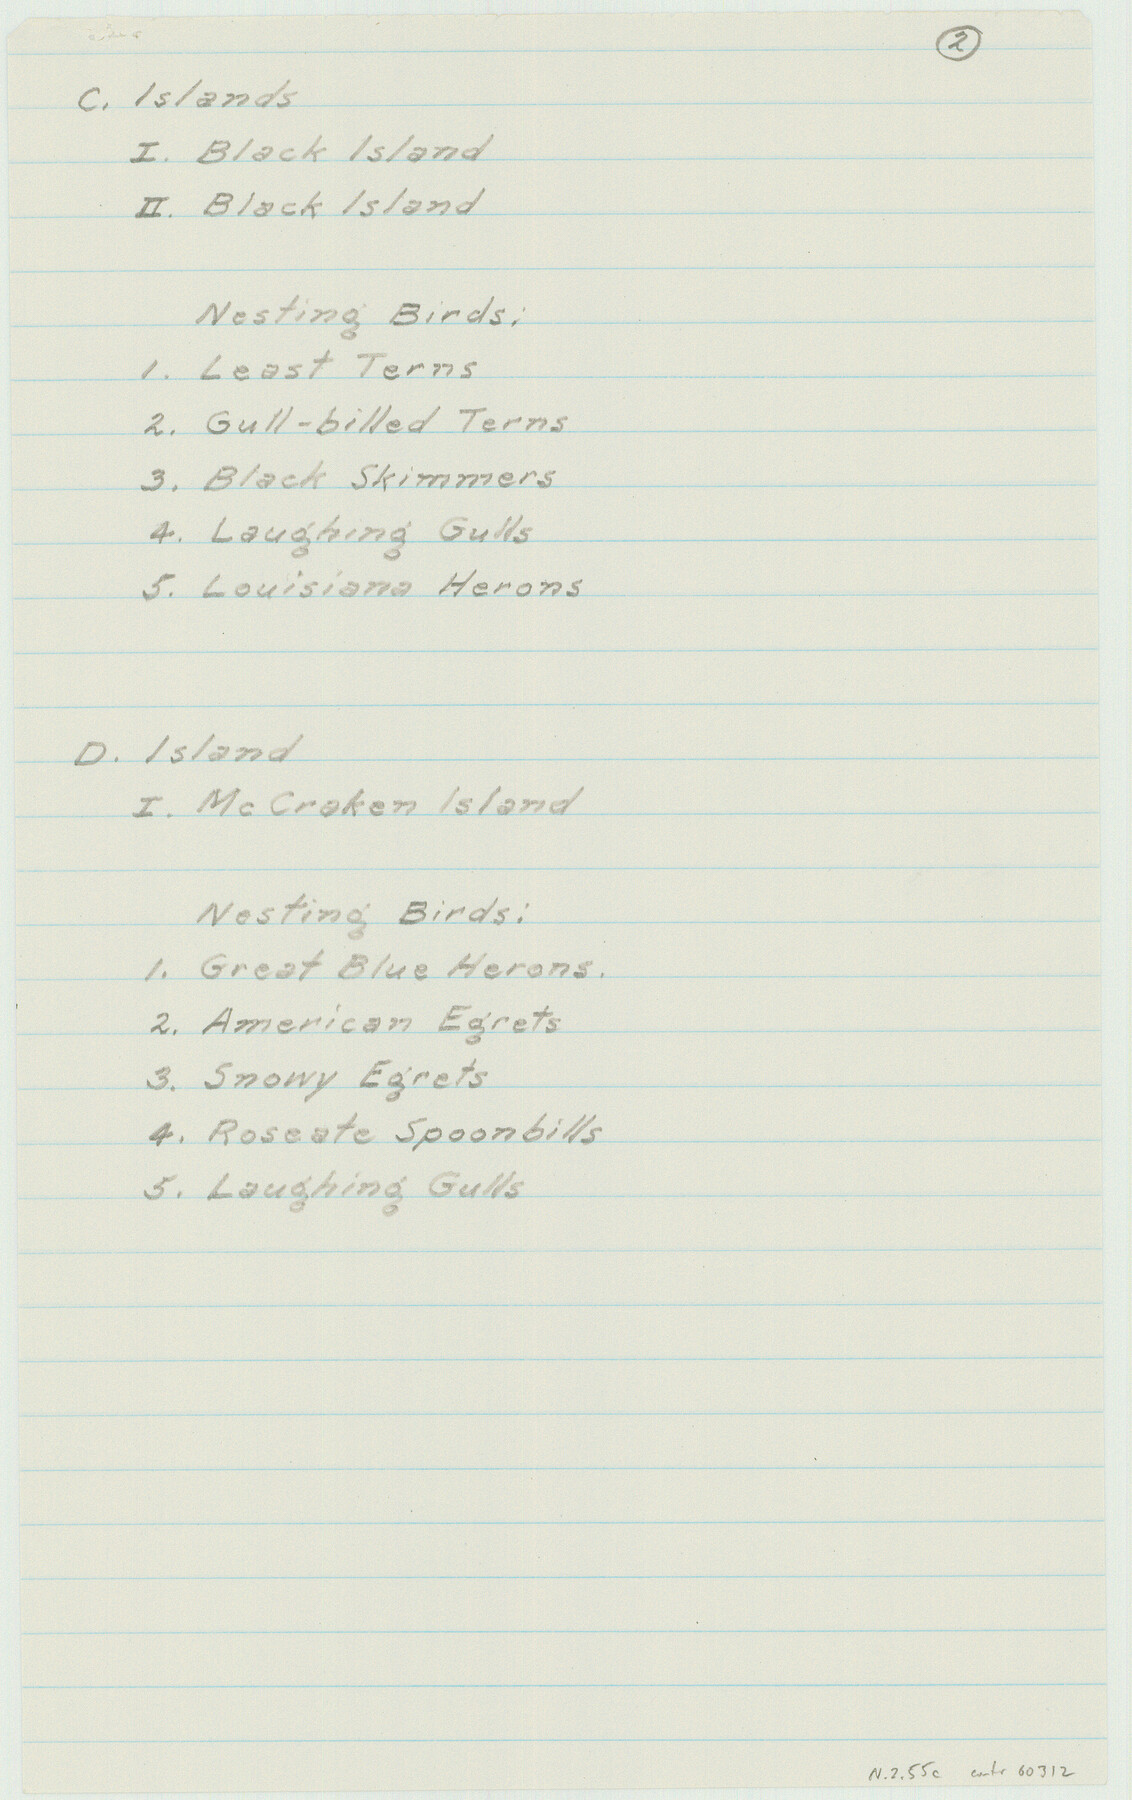 2
C. Islands
I. Black Island
II. Black Island
Nesting Birds:
1. Least Terns
2. Gull-billed Terns
3. Black Skimmers
4. Laughing Gulls
5. Louisiana Herons
D. Island
I. McCraken Island
Nesting Birds:
1. Great Blue Herons.
2. American Egrets
3. Snowy Egrets
4. Roseate Spoonbills
5. Laughing Gulls
N.2.55c 60312